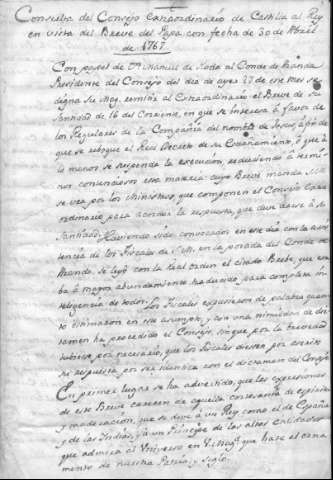 Consulta del Consejo Extraordinario de Castilla al Rey
en vista del Breve del Papa con fecha de 30 de Abril
de 1767
Con papel de Dn Manuel de Roda al Conde de Aranda
Presidente del Consejo del dia de ayer 29 de este mes se
digna Su Mag. remitir al Extraordinario el Breve de Su
Santidad de 16 del Corriente, en que se interesa á favor de
los Regulares de la Compañia del nombre de Jesus, á fin de
que se reboque el Real Decreto de su Estrañamiento, ó que á
lo menos se suspenda la execucion, reduciendo á termi
nos contenciosos esta materia cuyo Breve manda S.M.
se vea por los Ministros que componen el Consejo Extra
ordinario para acordar la respuesta, que deve darse á Su
Santidad. Haviendo sido convocados en este dia con la asis
tencia de los Fiscales de S.M. en la posada del Conde de
Aranda. Se leyó con la Real orden el citado Breve, que esta
ba á mayor abundamiento traducido, para completa in
teligencia de todos. Los Fiscales expusieron de palabra quan
to estimaron en este asumpto; y con una nimidad de dic
tamen ha procedido el Consejo, sin que por la brevedad
tubiese por necesario, que los Fiscales diesen por escrito
su respuesta, por ser identica con el dictamen del Consejo
En primer lugar se ha advertido, que las expresiones
de este Breve carecen de aquella cortesanía de espiritu
y moderacion, que se deve á un Rey como el de España
y de las Indias, y á un Principe de las altas calidades
que admira el Universo en V. Mag. y que hace el orna
mento de nuestra Patria y Siglo.